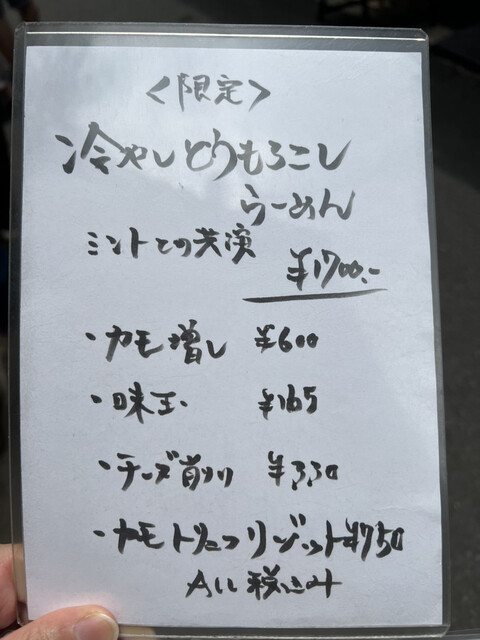 <限定>
冷やしとうもろこし
らーめん
ミントとの共演
¥1700.-
・カモ増し ¥600
・味玉 ¥165
・チーズ削り ¥330
・カモトリュフリゾット¥750
All 税込み